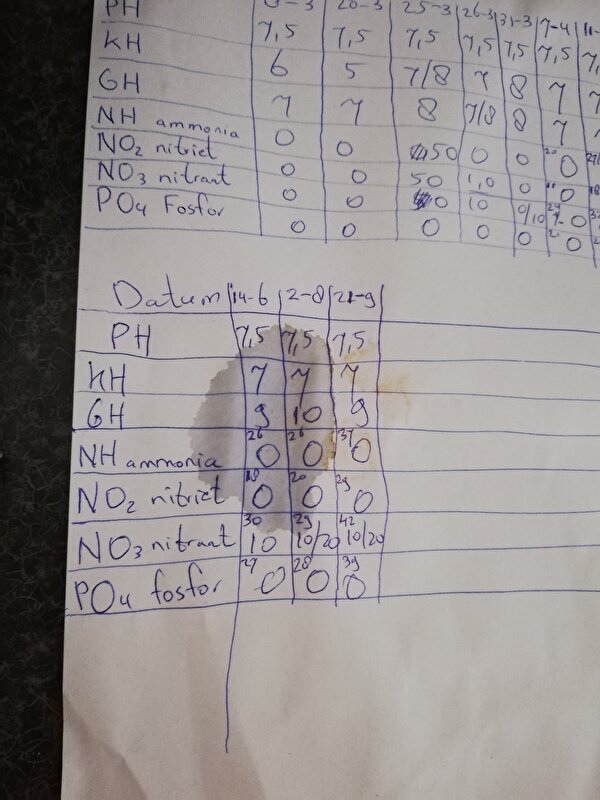 PH
20-3 25-3 26-3 31-3 7-4
KH 7,5 7,5 7,5 7,5 7,5 7,5
GH 6 5 7/8 7 8 7
NH ammonia 7 7 8 7/8 8 7
NO2 nitriet 0 0 50 0 0 20 0
NO3 nitraat 0 0 50 1,0 0 11 0
PO4 Fosfor 0 0 0 10 0/10 0
0 0 0 0 0 0
Datum 14-6 2-8 21-9
PH 7,5 7,5 7,5
KH 7 7 7
GH 9 10 9
NH ammonia 26 0 26 0 37 0
NO2 nitriet 18 0 20 0 29 0
NO3 nitraat 30 10 29 10/20 42 10/20
PO4 fosfor 27 0 28 0 39 0